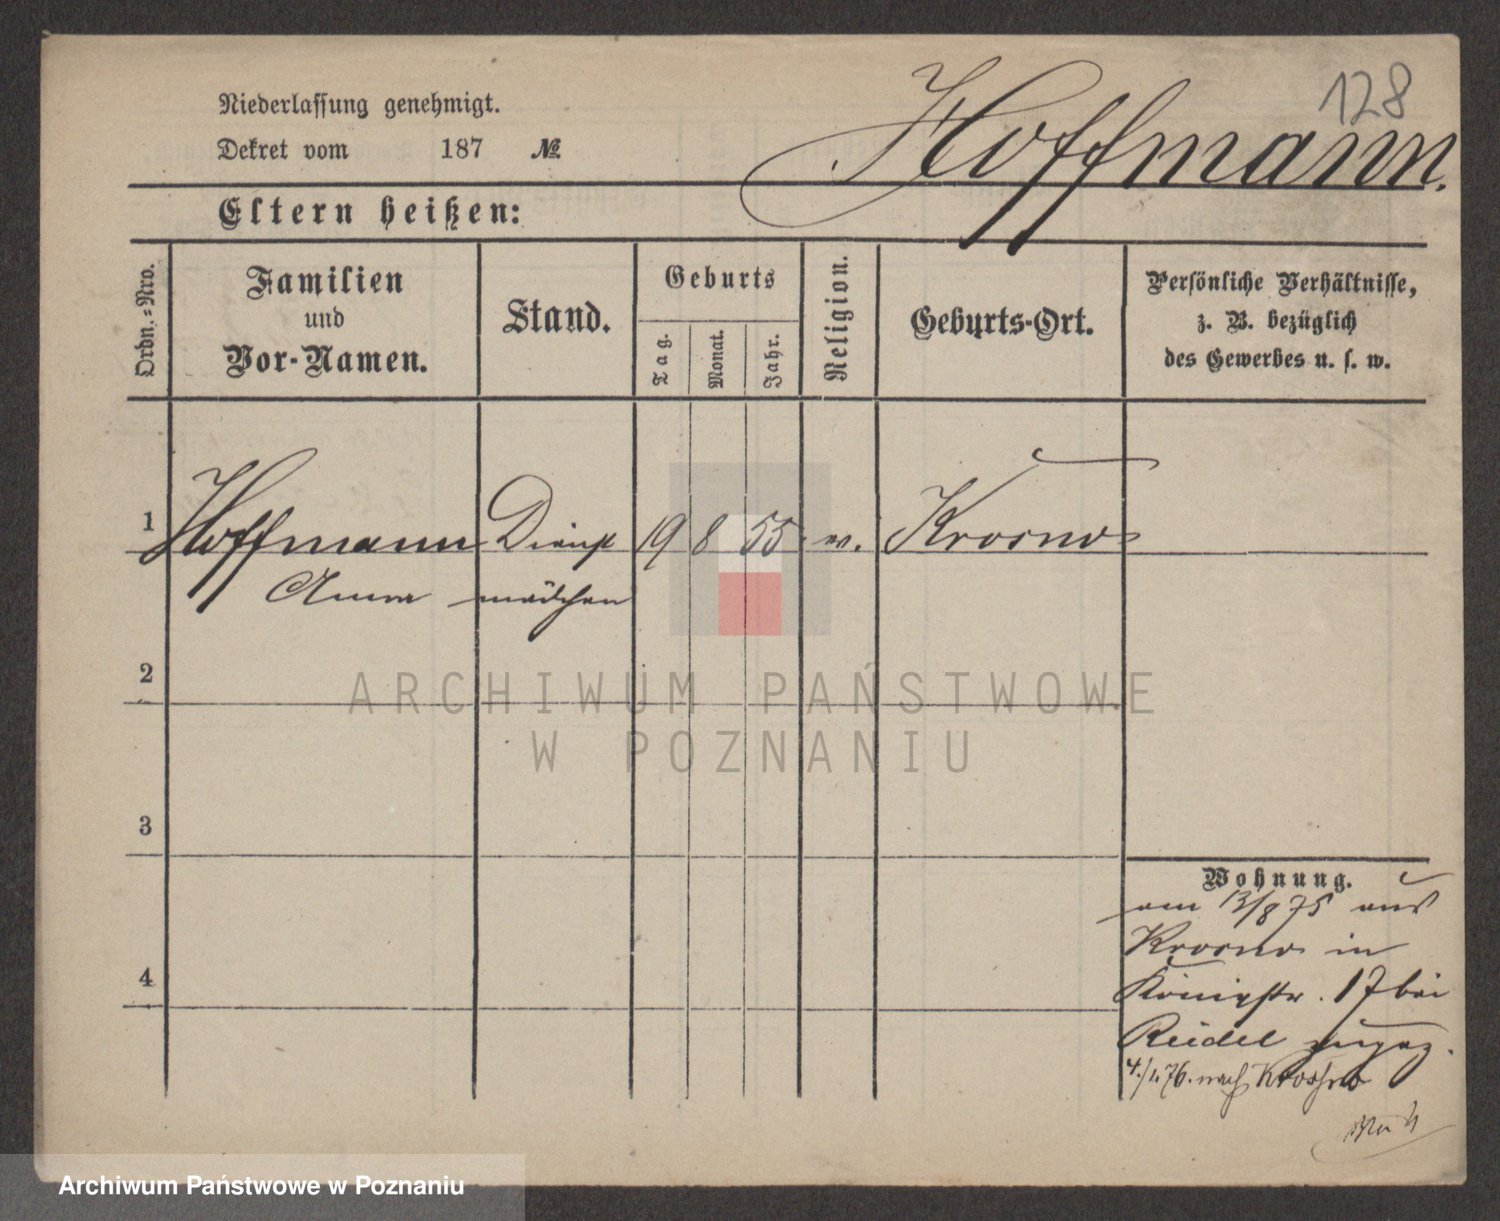 128
Niederlassung genehmigt.
Hoffmann.
Dekret vom 187 №
Eltern heißen:
Ordn.-Nro.
Familien
und
Vor-Namen.
Stand.
Geburts
Tag.
Monat.
Jahr.
Religion.
Geburts-Ort.
Persönliche Verhältnisse,
z. B. bezüglich
des Gewerbes u. s. w.
1 Hoffmann Dienst 19 8 55 Krosno
Anna mädchen
2
ARCHIWUM PAŃSTWOWE
W POZNANIU
3
Wohnung.
am 13/8 75 aus
Krosno in
4
Königstr. 17 bei
Reidel zugez.
4./1.76. nach Kroshno
Archiwum Państwowe w Poznaniu